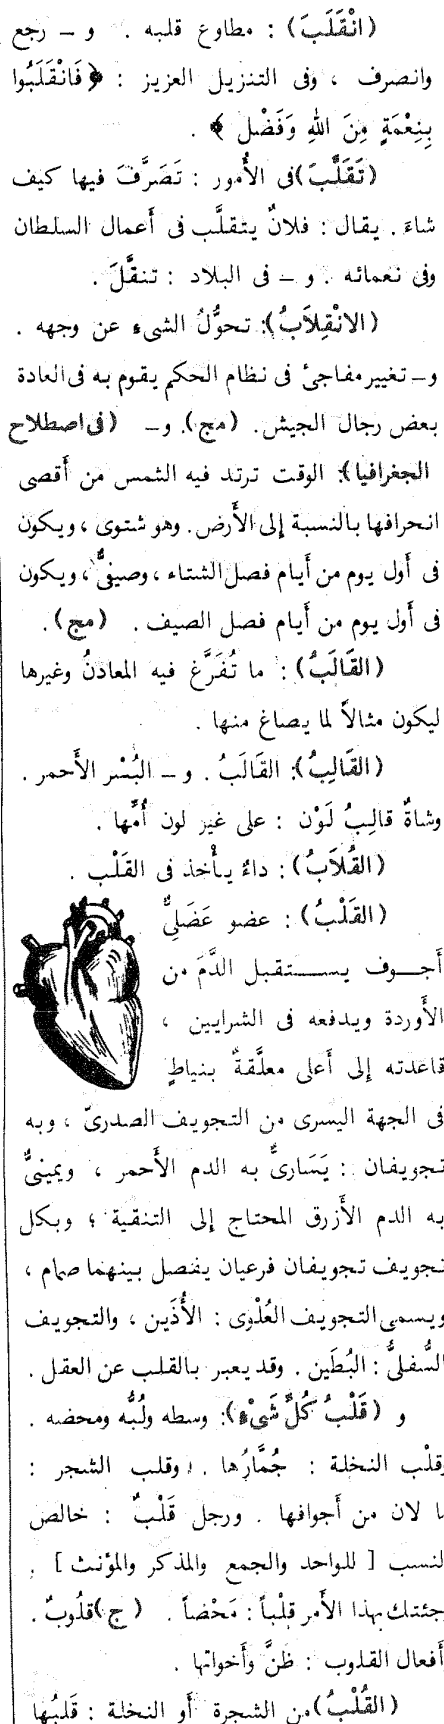 (انْقَلَبَ) : مطاوع قلبه . و ـ رجع
وانصرف ، وفى التنزيل العزيز : ﴿ فَانْقَلَبُوا
بِنِعْمَةٍ مِنَ اللهِ وَفَضْل ﴾ .
(تَقَلَّبَ)فى الأُمور : تَصَرَّفَ فيها كيف
شاءَ . يقال : فلانٌ يتقلَّب فى أَعمال السلطان
وفى نعمائه . و ـ فى البلاد : تنقَّلَ .
(الانْقِلَابُ): تحوُّلُ الشىءِ عن وجهه .
و ـ تغيير مفاجئ فى نظام الحكم يقوم به فى العادة
بعض رجال الجيش . (مج). و ـ (فى اصطلاح
الجغرافيا): الوقت ترتد فيه الشمس من أَقصى
انحرافها بالنسبة إلى الأَرض . وهو شتوى ، ويكون
فى أَول يوم من أَيام فصل الشتاء ، وصيفىٌّ ، ويكون
فى أَول يوم من أَيام فصل الصيف . (مج) .
(القَالَبُ) : ما تُفَرَّغ فيه المعادنُ وغيرها
ليكون مثالاً لما يصاغ منها .
(القَالِبُ): القَالَبُ . و ـ البُسْر الأَحمر .
وشاةٌ قالِبُ لَوْن : على غير لون أُمِّها .
(القُلَابُ) : داءٌ يأْخذ فى القَلْب .
(القَلْبُ) : عضو عَضَلِىٌّ
أَجـوف يســتقبل الدَّمَ من
الأَوردة ويدفعه فى الشرايين ،
قاعدته إلى أَعلى معلَّقةٌ بنياطٍ
فى الجهة اليسرى من التجويف الصدرىّ ، وبه
تجويفان : يَسَارىٌّ به الدم الأَحمر ، ويمينىٌّ
به الدم الأَزرق المحتاج إلى التنقية ؛ وبكل
تجويف تجويفان فرعيان يفصل بينهما صمام ،
ويسمى التجويف العُلْوى : الأُذَين ، والتجويف
السُّفلىُّ : البُطَين . وقد يعبر بالقلب عن العقل .
و (قَلْبُ كُلِّ شَىْءٍ): وسطه ولُبُّه ومحضه .
وقلْب النخلة : جُمَّارُها . وقلب الشجر :
ما لان من أَجوافها . ورجل قَلْبٌ : خالص
النسب [ للواحد والجمع والمذكر والمؤنث ] .
جئتك بهذا الأَمر قلْباً : مَحْضاً . (ج)قلُوبٌ .
أَفعال القلوب : ظنَّ وأَخواتها .
(القُلْبُ)من الشجرة أَو النخلة : قَلبُها